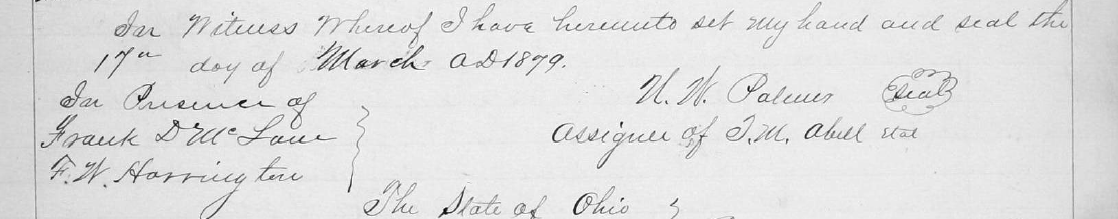 In Witness Whereof I have hereunto set my hand and seal the
17th day of March A D 1879.
In Presence of
Frank D McLain
F. W. Harrington
W. W. Palmer Seal
Assignee of T. M. Abell et al
The State of Ohio